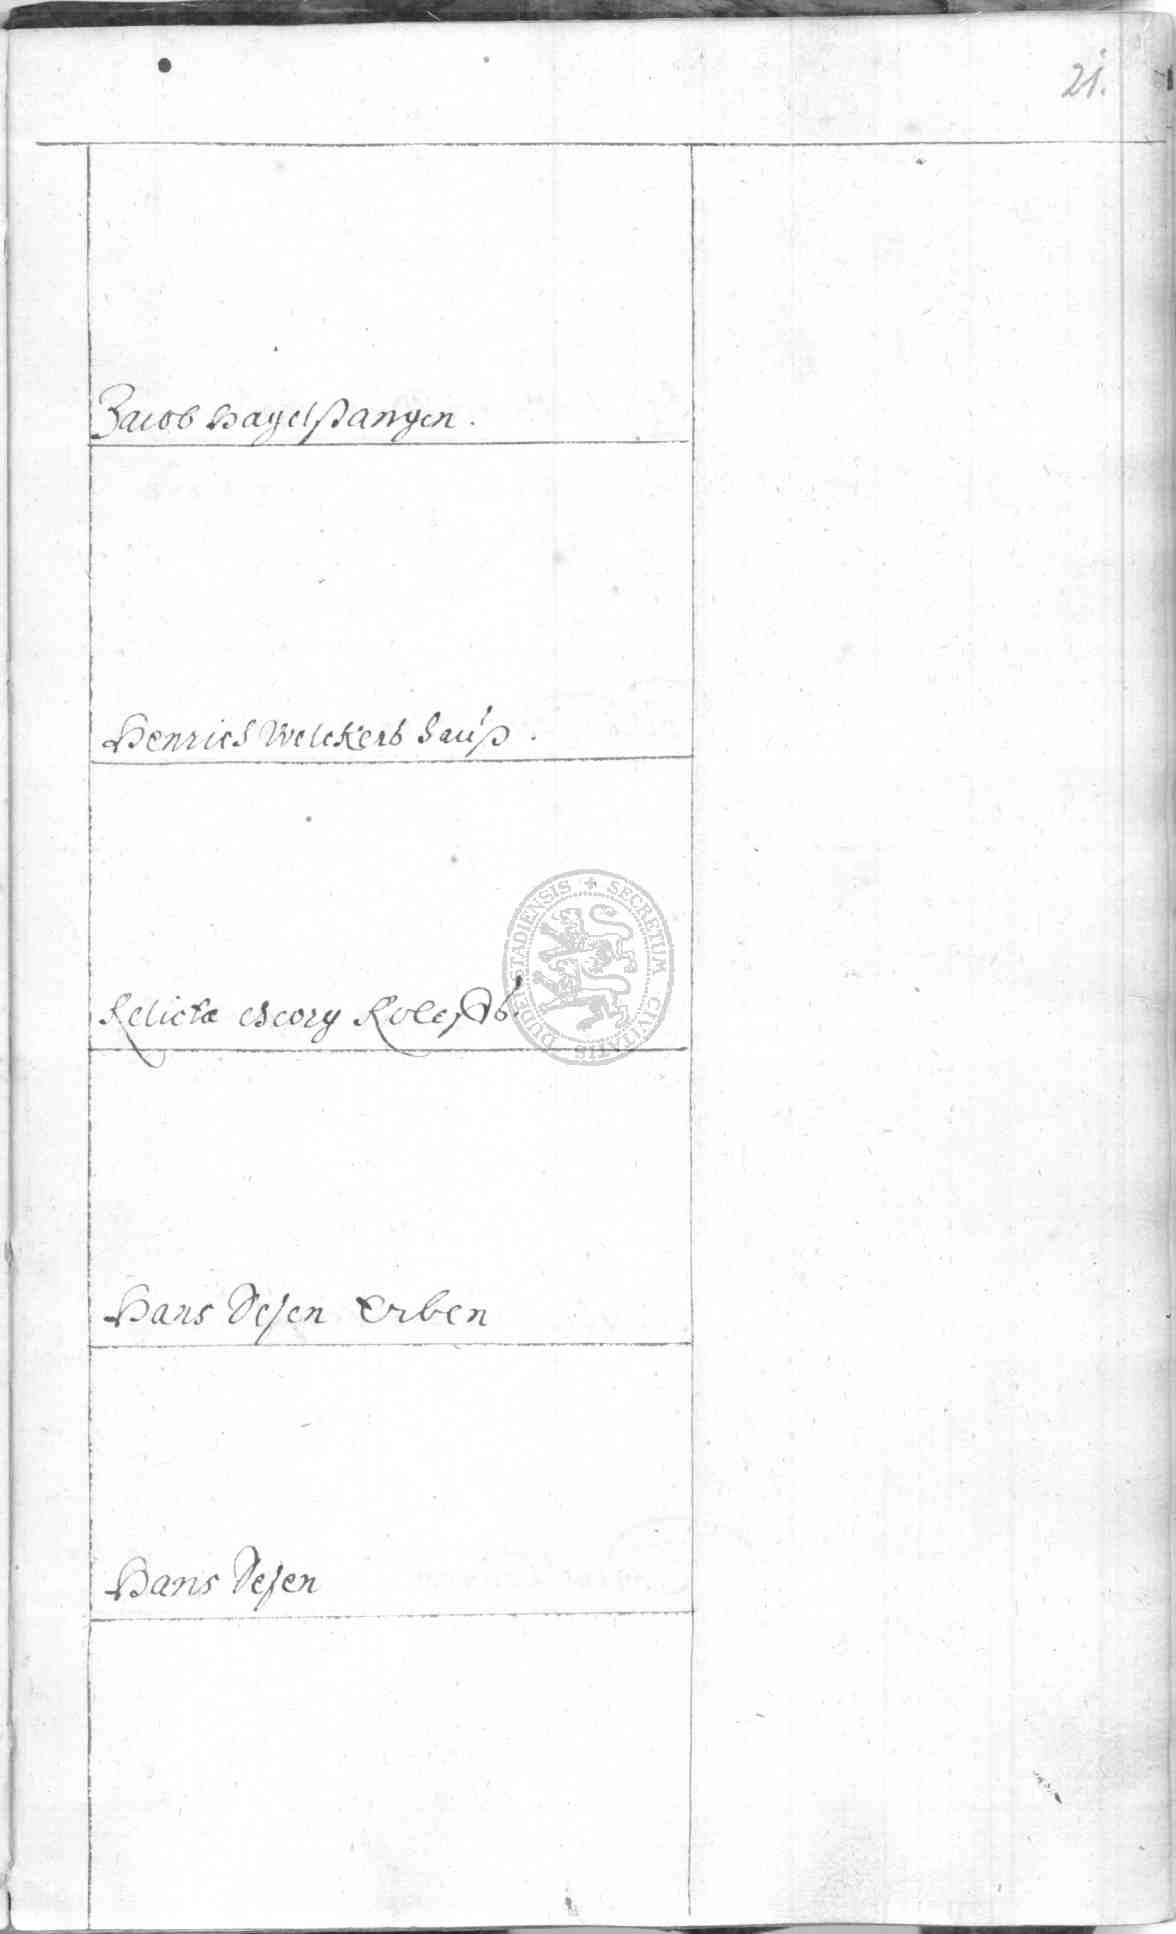 21.
Jacob Hagelstangen.
Henrich Welckers hauß.
Relicta Georg
Hans Desen Erben
Hans Desen
SECRETUM CIVITATIS DUDERSTADIENSIS